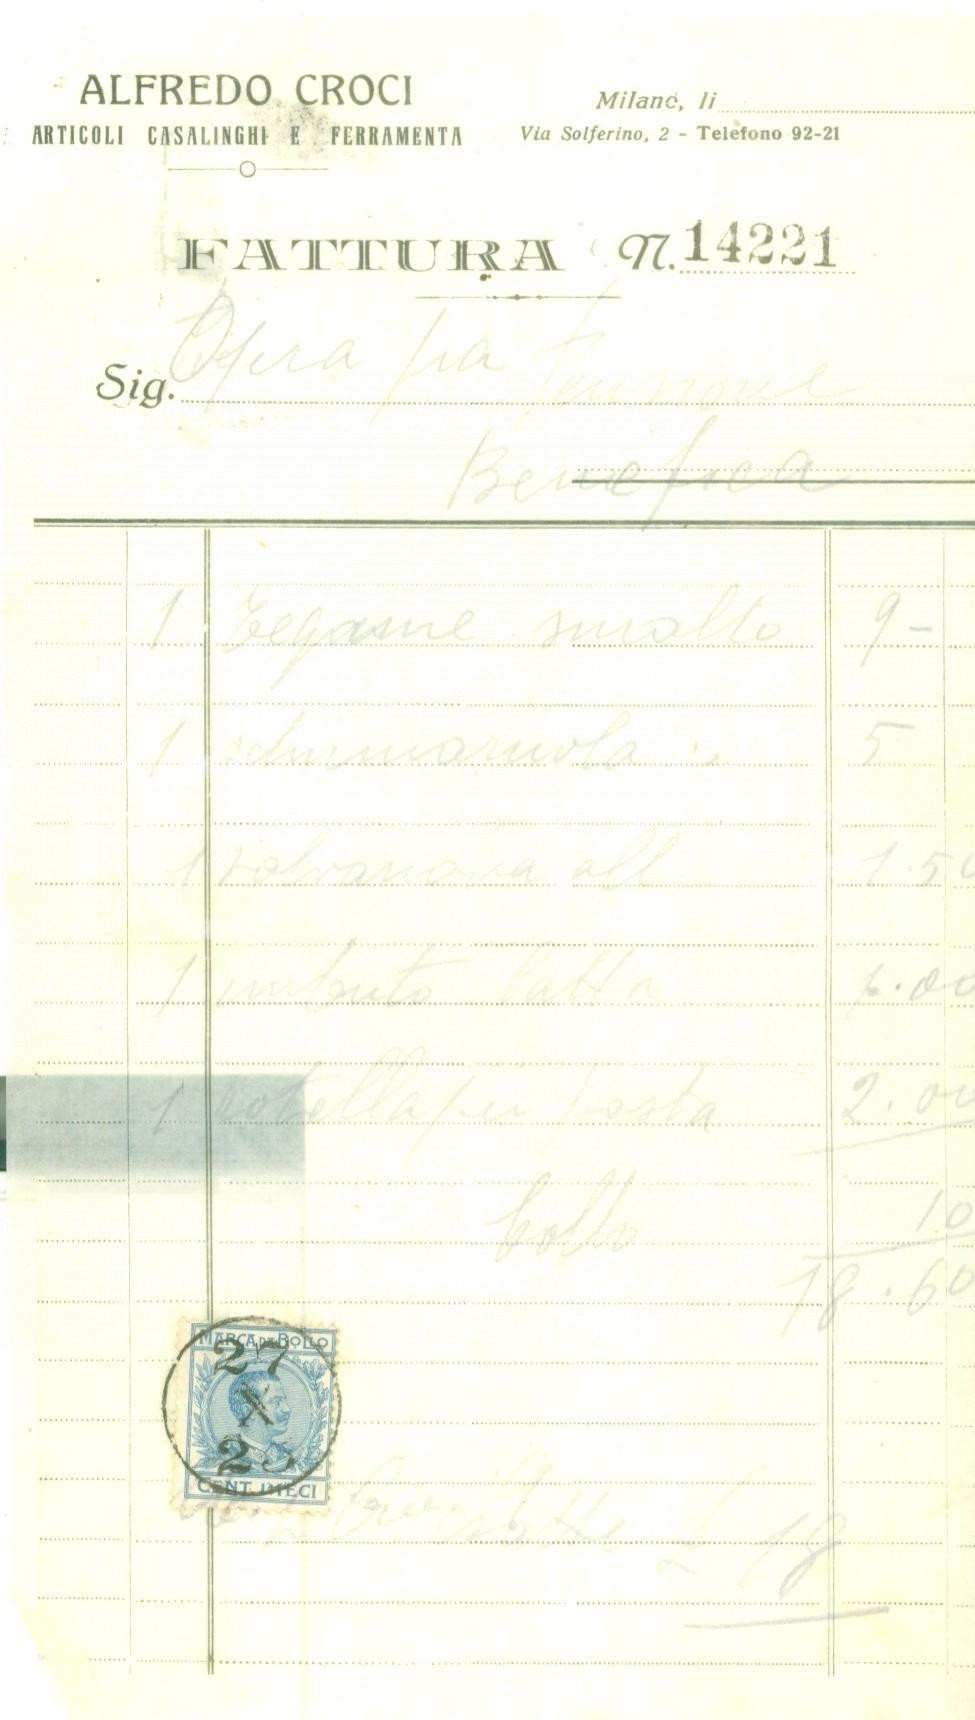 ALFREDO CROCI
ARTICOLI CASALINGHI E FERRAMENTA
Milano, li
Via Solferino, 2 - Telefono 92-21
FATTURA N. 14221
Sig. Opera pia Pensione
Benefica
1 Tegame smalto 9 -
1 schiumaruola " 5
1 all 1.50
1 imbuto latta .00
1 rotella per pasta 2.00
bollo 10
18.60
MARCA DA BOLLO
27
X
2
CENT. DIECI
L 18